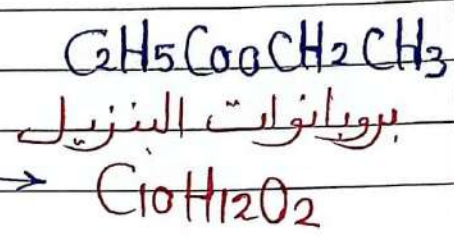 C2H5COOCH2CH3
بروبانوات البنزيل
→ C10H12O2